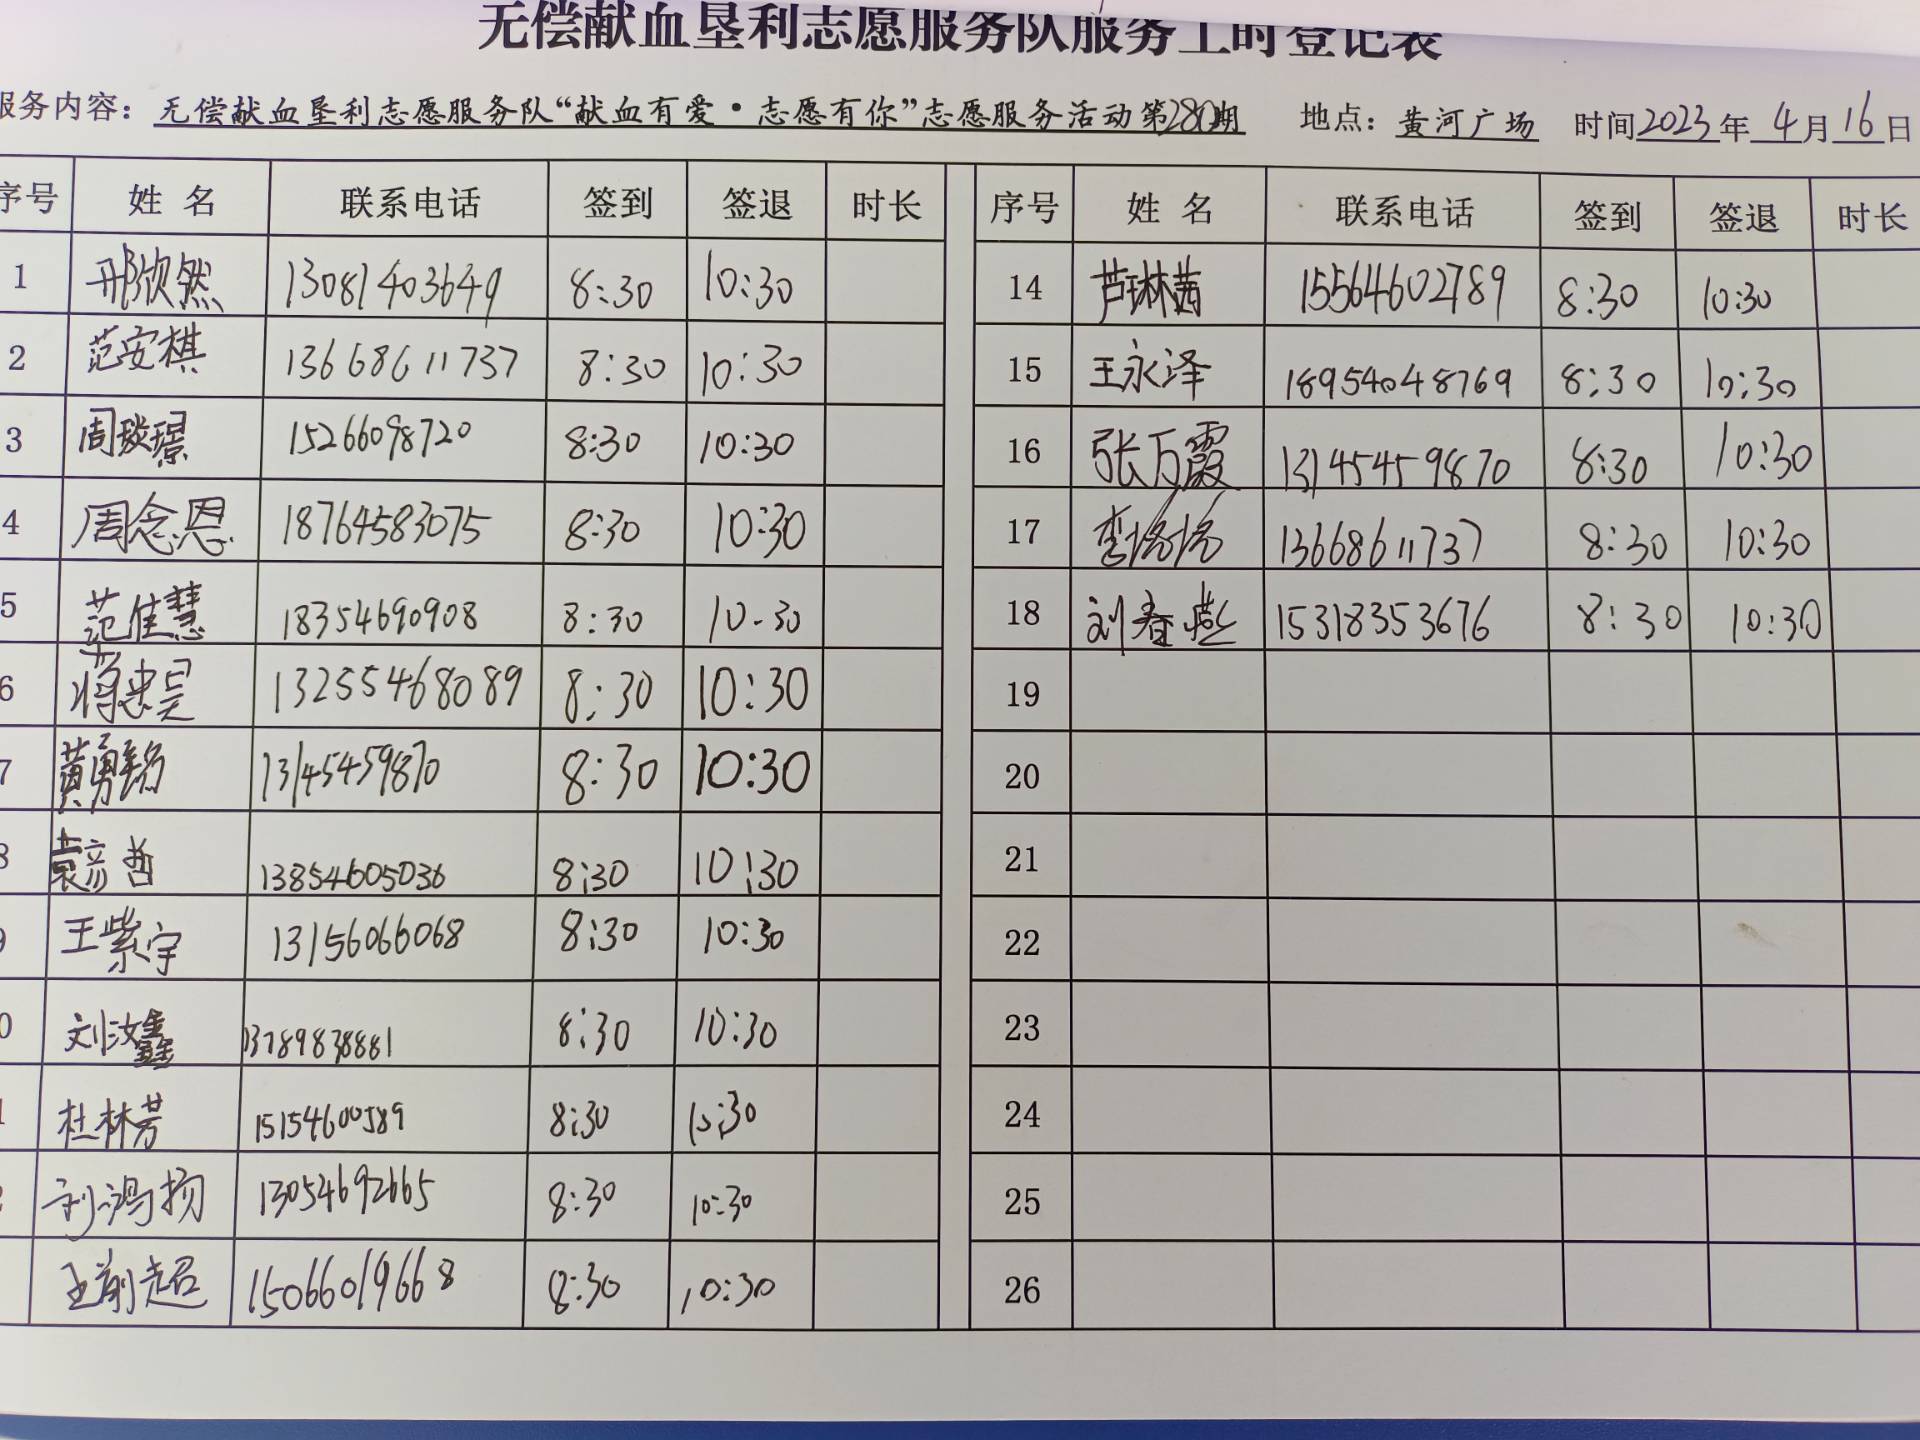 无偿献血垦利志愿服务队服务工时登记表
服务内容：无偿献血垦利志愿服务队“献血有爱·志愿有你”志愿服务活动第280期 地点：黄河广场 时间2023年4月16日
序号 姓名 联系电话 签到 签退 时长 序号 姓名 联系电话 签到 签退 时长
1 邢欣然 13081403649 8:30 10:30 14 芦琳茜 15564602789 8:30 10:30
2 范安棋 13668611737 8:30 10:30 15 王永泽 18954048769 8:30 10:30
3 周琰璟 15266098720 8:30 10:30 16 张万霞 13145459870 8:30 10:30
4 周念恩 18764583075 8:30 10:30 17 13668611737 8:30 10:30
5 范佳慧 18354690908 8:30 10-30 18 刘春燕 15318353676 8:30 10:30
6 蒋忠昊 13255468089 8:30 10:30 19
7 黄勇铭 13145459870 8:30 10:30 20
8 袁彦哲 13854605036 8:30 10:30 21
9 王紫宇 13156066068 8:30 10:30 22
0 刘汝鑫 13789838881 8:30 10:30 23
1 杜林芳 15154600589 8:30 10:30 24
2 刘鸿扬 13054692665 8:30 10:30 25
王前超 15066019668 8:30 10:30 26